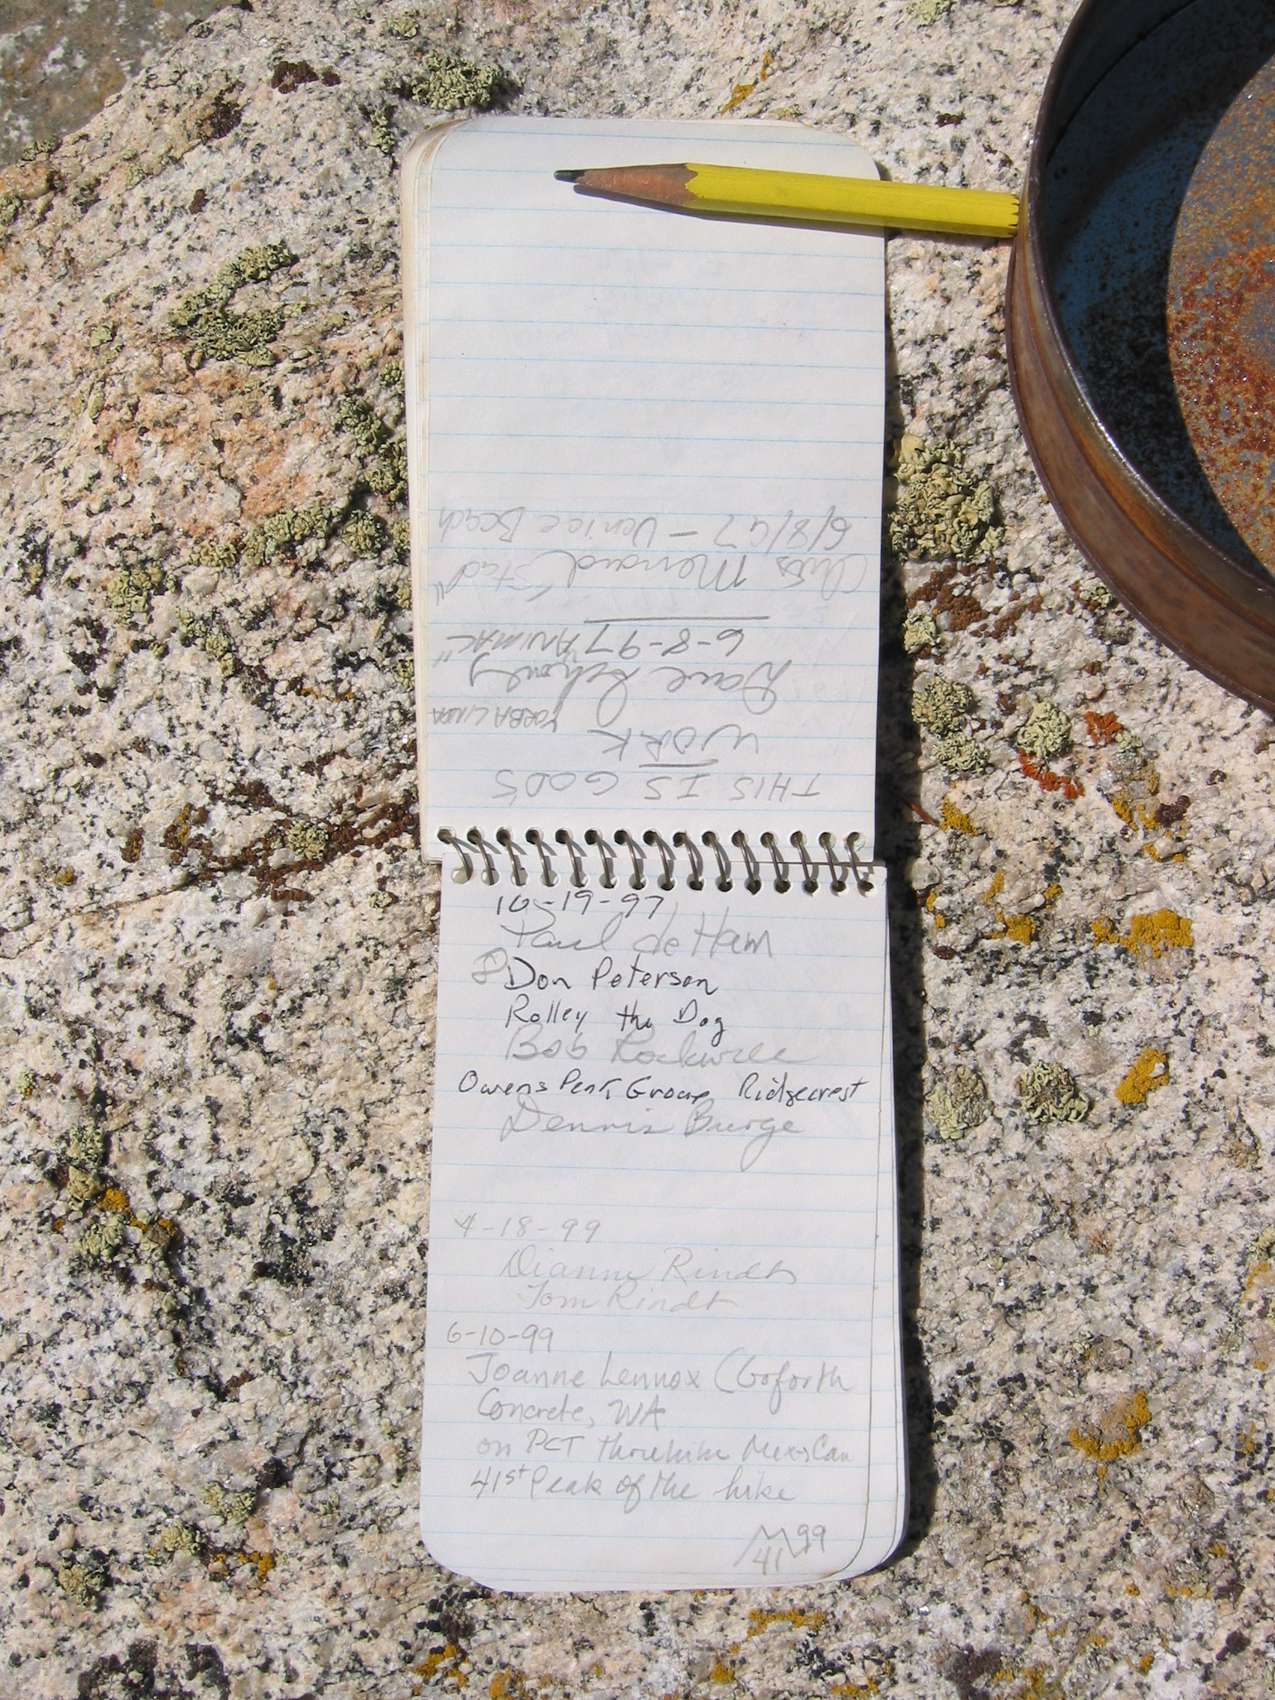 THIS IS GOD'S
WORK YORBA LINDA
Dave
6-8-97 "ANIMAL"
Chris Menard "Stad"
6/8/97 - Venice Beach
10-19-97
Paul de Ham
Don Peterson
Rolley the Dog
Bob Rockwell
Owens Peak Group Ridgecrest
Dennis Burge
4-18-99
Dianne Rindt
Tom Rindt
6-10-99
Joanne Lennox (Goforth
Concrete, WA
on PCT thruhike Mex-Can
41st Peak of the hike
99
41